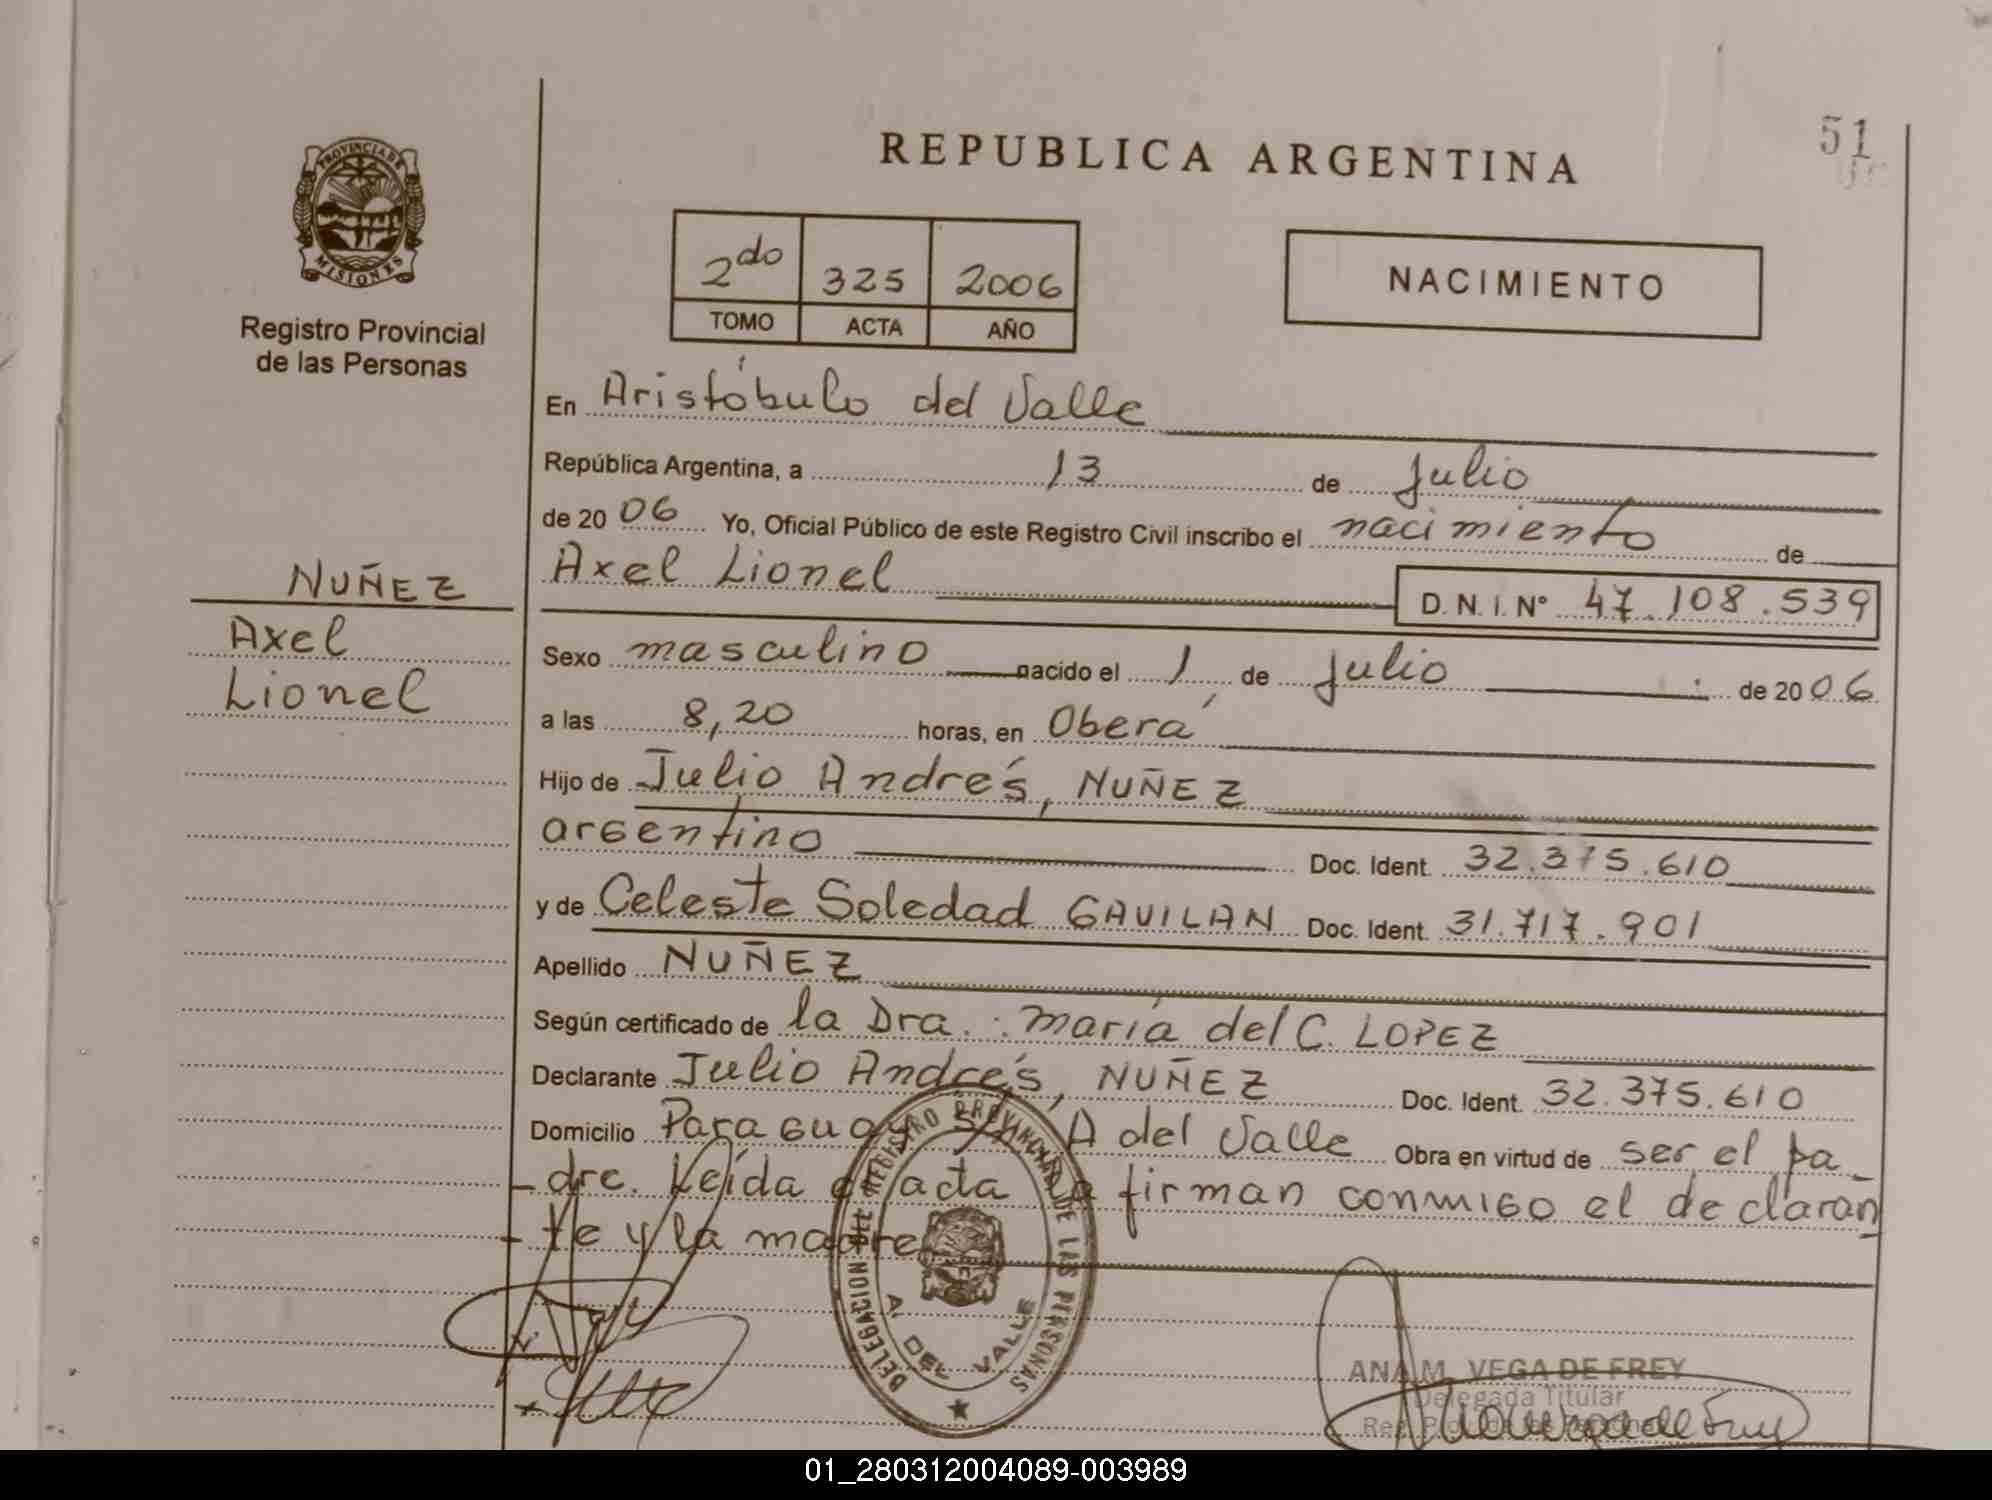 51
REPUBLICA ARGENTINA
PROVINCIA DE
MISIONES
Registro Provincial
de las Personas
2do 325 2006
TOMO ACTA AÑO
NACIMIENTO
En Aristóbulo del Valle
República Argentina, a 13 de Julio
de 2006 Yo, Oficial Público de este Registro Civil inscribo el nacimiento de
Axel Lionel D.N.I. Nº 47.108.539
NUÑEZ
Axel
Lionel
Sexo masculino nacido el 1 de Julio de 2006
a las 8,20 horas, en Oberá
Hijo de Julio Andrés, NUÑEZ
argentino Doc. Ident. 32.375.610
y de Celeste Soledad GAVILAN Doc. Ident. 31.717.901
Apellido NUÑEZ
Según certificado de la Dra. : María del C. LOPEZ
Declarante Julio Andrés, NUÑEZ Doc. Ident. 32.375.610
Domicilio Paraguay A del Valle Obra en virtud de ser el pa-
dre. Leída el acta la firman conmigo el declaran
te y la madre
DELEGACION DEL REGISTRO PROVINCIAL DE LAS PERSONAS
A. DEL VALLE
ANA M. VEGA DE FREY
Delegada Titular
01_280312004089-003989